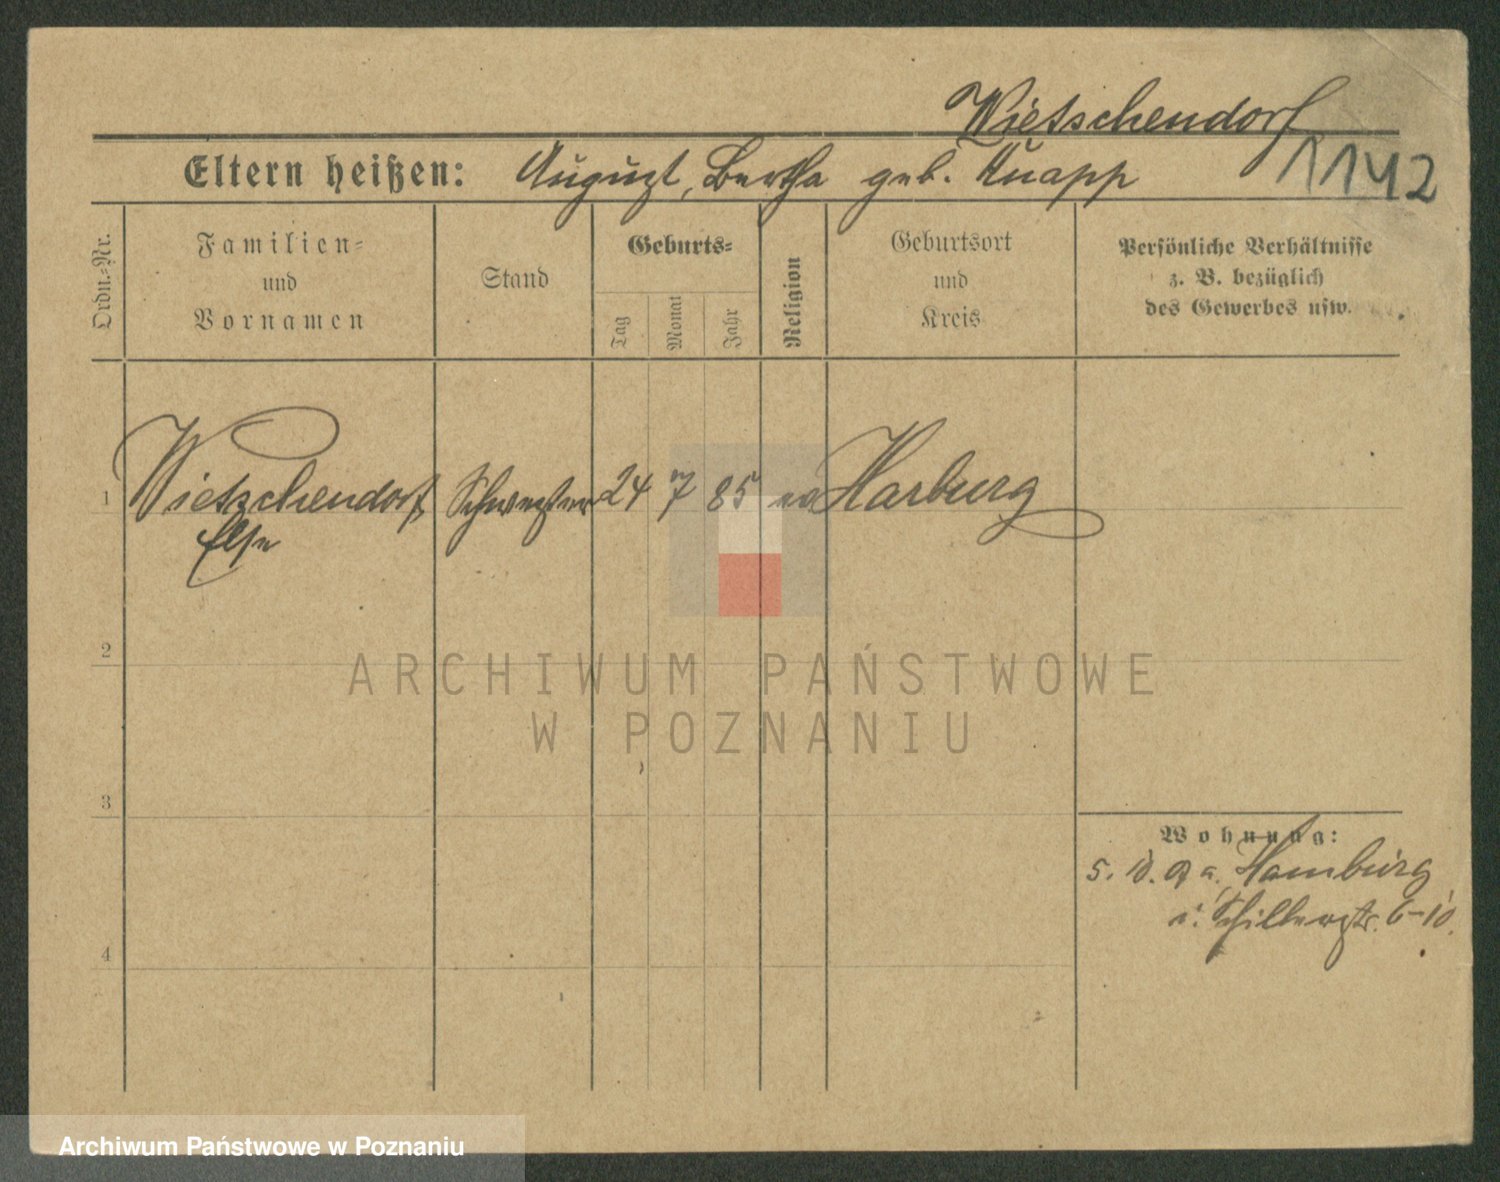 Wietschendorf
1142
Eltern heißen: August, Bertha geb. Knapp
Ordn.=Nr.
Familien=
und
Vornamen
Stand
Geburts=
Tag
Monat
Jahr
Religion
Geburtsort
und
Kreis
Persönliche Verhältnisse
z. B. bezüglich
des Gewerbes usw.
1 Wietschendorf Schwester 24 7 85 ev Harburg
Else
2
3
4
Wohnung:
5. 10. 9 a. Hamburg
i. Schillerstr. 6-10.
ARCHIWUM PAŃSTWOWE
W POZNANIU
Archiwum Państwowe w Poznaniu